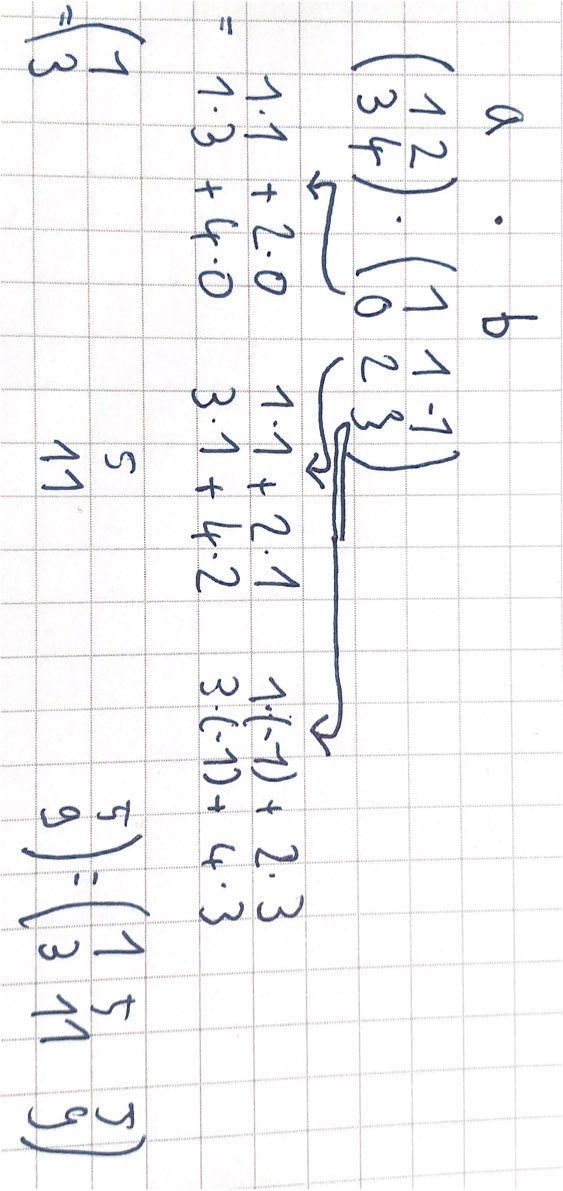 a · b
(1 2) · (1 1 -1)
(3 4) (0 2 3)
1·1 + 2·0 1·1 + 2·1 1·(-1) + 2·3
= 1·3 + 4·0 3·1 + 4·2 3·(-1) + 4·3
=(1 5 5) = (1 5 5)
(3 11 9) (3 11 9)